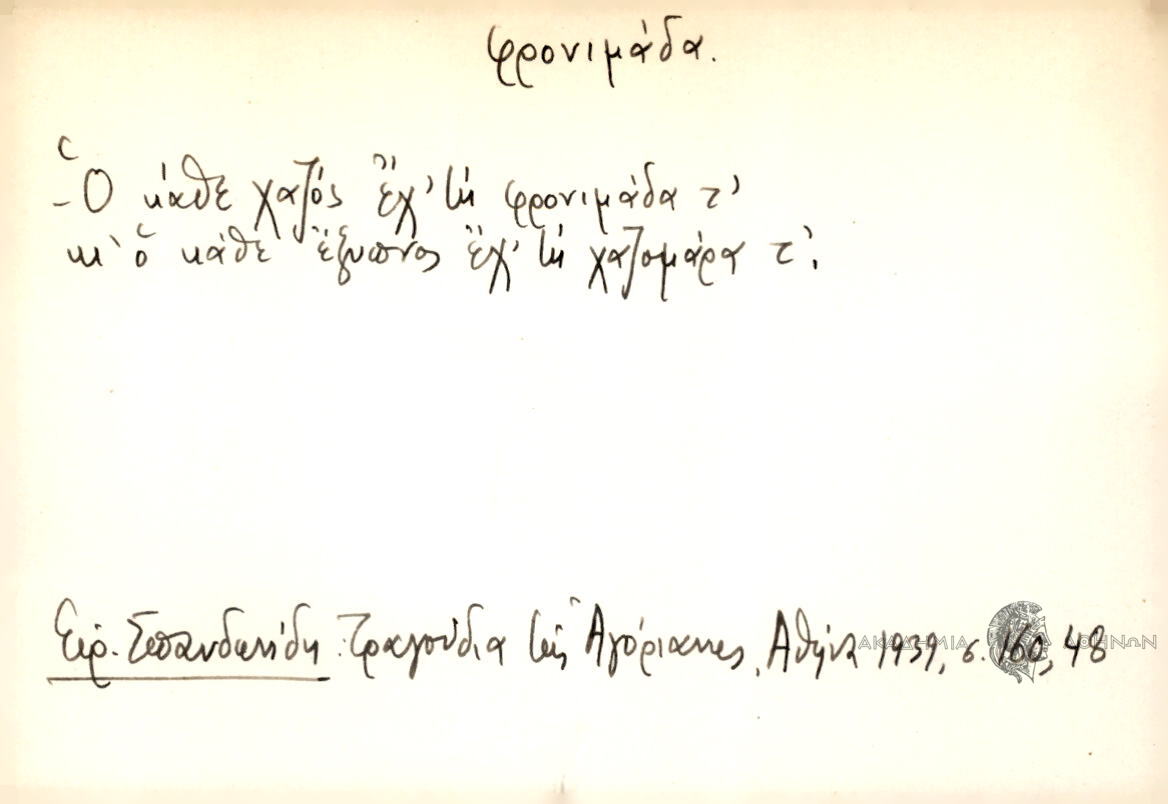 φρονιμάδα.
- Ὁ κάθε χαζός ἔχ' τή φρονιμάδα τ'
κι' ὁ κάθε ἔξυπνος ἔχ' τή χαζομάρα τ'.
Εἰρ. Σπανδωνίδη: Τραγούδια τῆς Ἀγόριανης, Ἀθήνα 1939, σ. 160, 48
ΑΚΑΔΗΜΙΑ ΑΘΗΝΩΝ